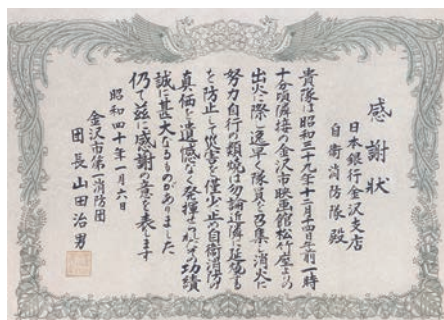 感謝状
日本銀行金沢支店
自衛消防隊 殿
貴隊は昭和三十九年十二月二十四日午前一時
十分頃隣接の金沢市映画館松竹座より
出火に際し逸早く隊員を召集し消火に
努力自行の類焼は勿論近隣に延焼する
を防止して災害を僅少に止め自衛消防の
真価を遺憾なく発揮せられその功績
誠に甚大なるものがありました
仍て茲に感謝の意を表します
昭和四十年一月六日
金沢市第一消防団
団長 山田治男